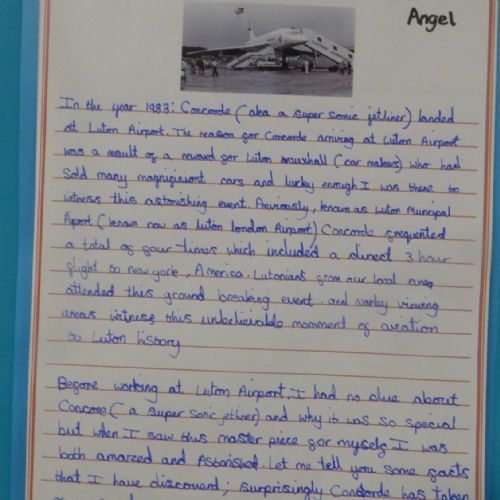 Angel
In the year 1983: Concorde (aka a super sonic jetliner) landed
at Luton Airport. The reason for Concorde arriving at Luton Airport
was a result of a reward for Luton vauxhall (car makers) who had
sold many magnificient cars and lucky enough I was there to
witness this astonishing event. Previously, known as Luton Municipal
Airport (known now as luton london Airport) Concorde frequented
a total of four times which included a direct 3 hour
flight to new york, America. Lutonians from our local
attended this ground breaking event and viewing
areas witness this unbelievable momment of aviation
to Luton history
Before working at Luton Airport, I had no clue about
Concore (a super sonic jetliner) and why it was so special
but when I saw this master piece for myself I was
both amazed and Astonished. Let me tell you some facts
that I have discoverd; surprisingly Concorde has taken